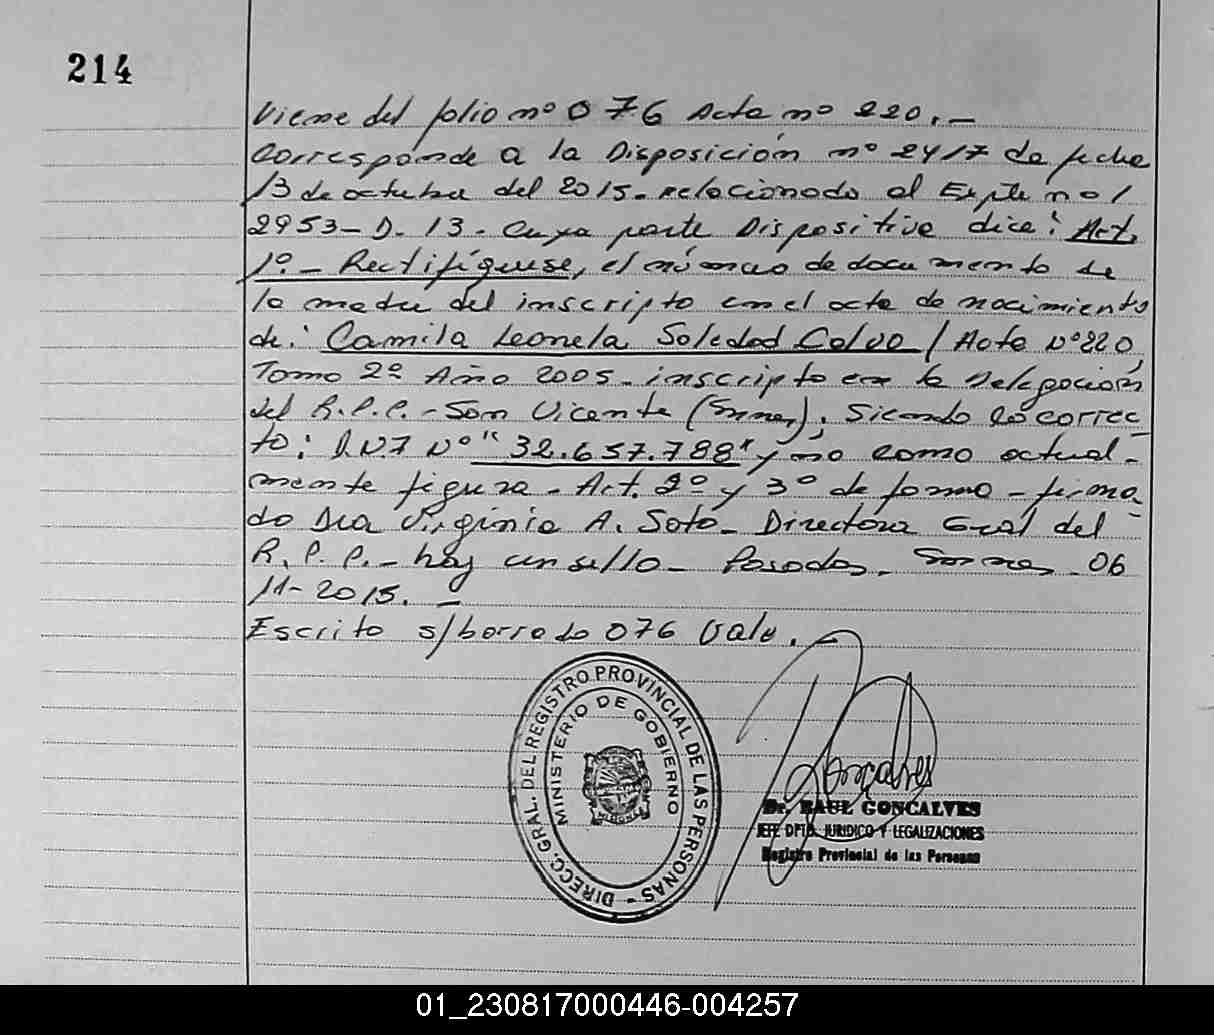 214
Viene del folio nº 076 Acta nº 220.-
Corresponde a la Disposición nº 2417 de fecha
13 de octubre del 2015. relacionado al Expte nº 1
2953-D-13. Cuya parte Dispositiva dice: Art.
1º.- Rectifíquese, el número de documento de
la madre del inscripto en el acta de nacimiento
de: Camila Leonela Soledad Calvo / Acta Nº 220
Tomo 2º Año 2005. inscripto en la Delegación
del R.P.P.- San Vicente (Mnes); Siendo lo correc
to: D.N.I Nº "32.657.788" y no como actual-
mente figura. Art. 2º y 3º de forma - firma
do Dra Virginia A. Soto - Directora Gral del
R.P.P.- hay un sello - Posadas, Mnes 06
11-2015.-
Escrito s/borrado 076 Vale.-
DIRECC. GRAL. DEL REGISTRO PROVINCIAL DE LAS PERSONAS -
MINISTERIO DE GOBIERNO
MISIONES
Goncalves
Dr. RAUL GONCALVES
JEFE DPTO. JURIDICO Y LEGALIZACIONES
Registro Provincial de las Personas
01_230817000446-004257